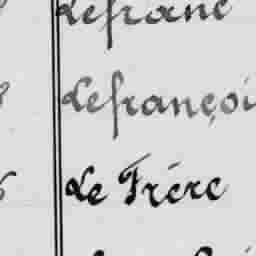 Lefranc
Lefrançoi
Le Frère